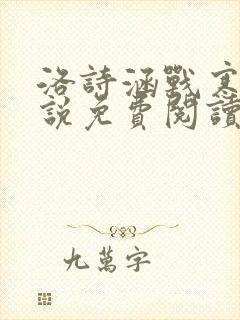 洛詩涵戰寒
說免費閱讀
九萬字